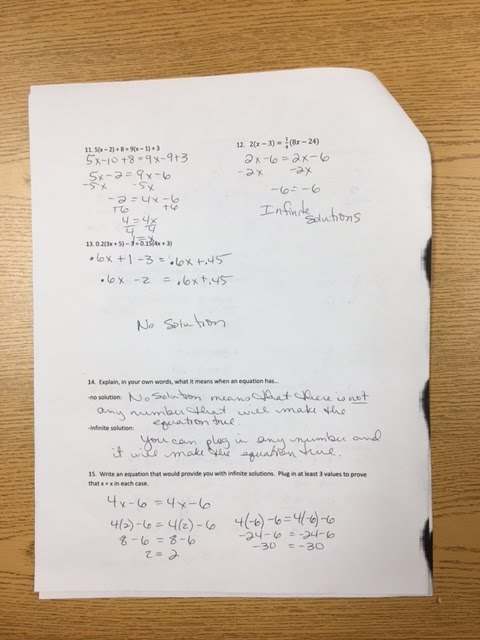 11. 5(x – 2) + 8 = 9(x – 1) + 3
5x-10+8=9x-9+3
5x-2 = 9x-6
-5x -5x
-2 = 4x -6
+6 +6
4 = 4x
4 4
1 = x
12. 2(x – 3) = ¼(8x – 24)
2x-6 = 2x-6
-2x -2x
-6 = -6
Infinite
Solutions
13. 0.2(3x + 5) – 3 = 0.15(4x + 3)
.6x +1 -3 = .6x +.45
.6x -2 = .6x +.45
No Solution
14. Explain, in your own words, what it means when an equation has…
-no solution: No Solution means that there is not
any number that will make the
equation true.
-Infinite solution:
You can plug in any number and
it will make the equation true.
15. Write an equation that would provide you with infinite solutions. Plug in at least 3 values to prove
that x = x in each case.
4x-6 = 4x-6
4(2)-6 = 4(2)-6
8-6 = 8-6
2 = 2
4(-6)-6=4(-6)-6
-24-6 = -24-6
-30 = -30